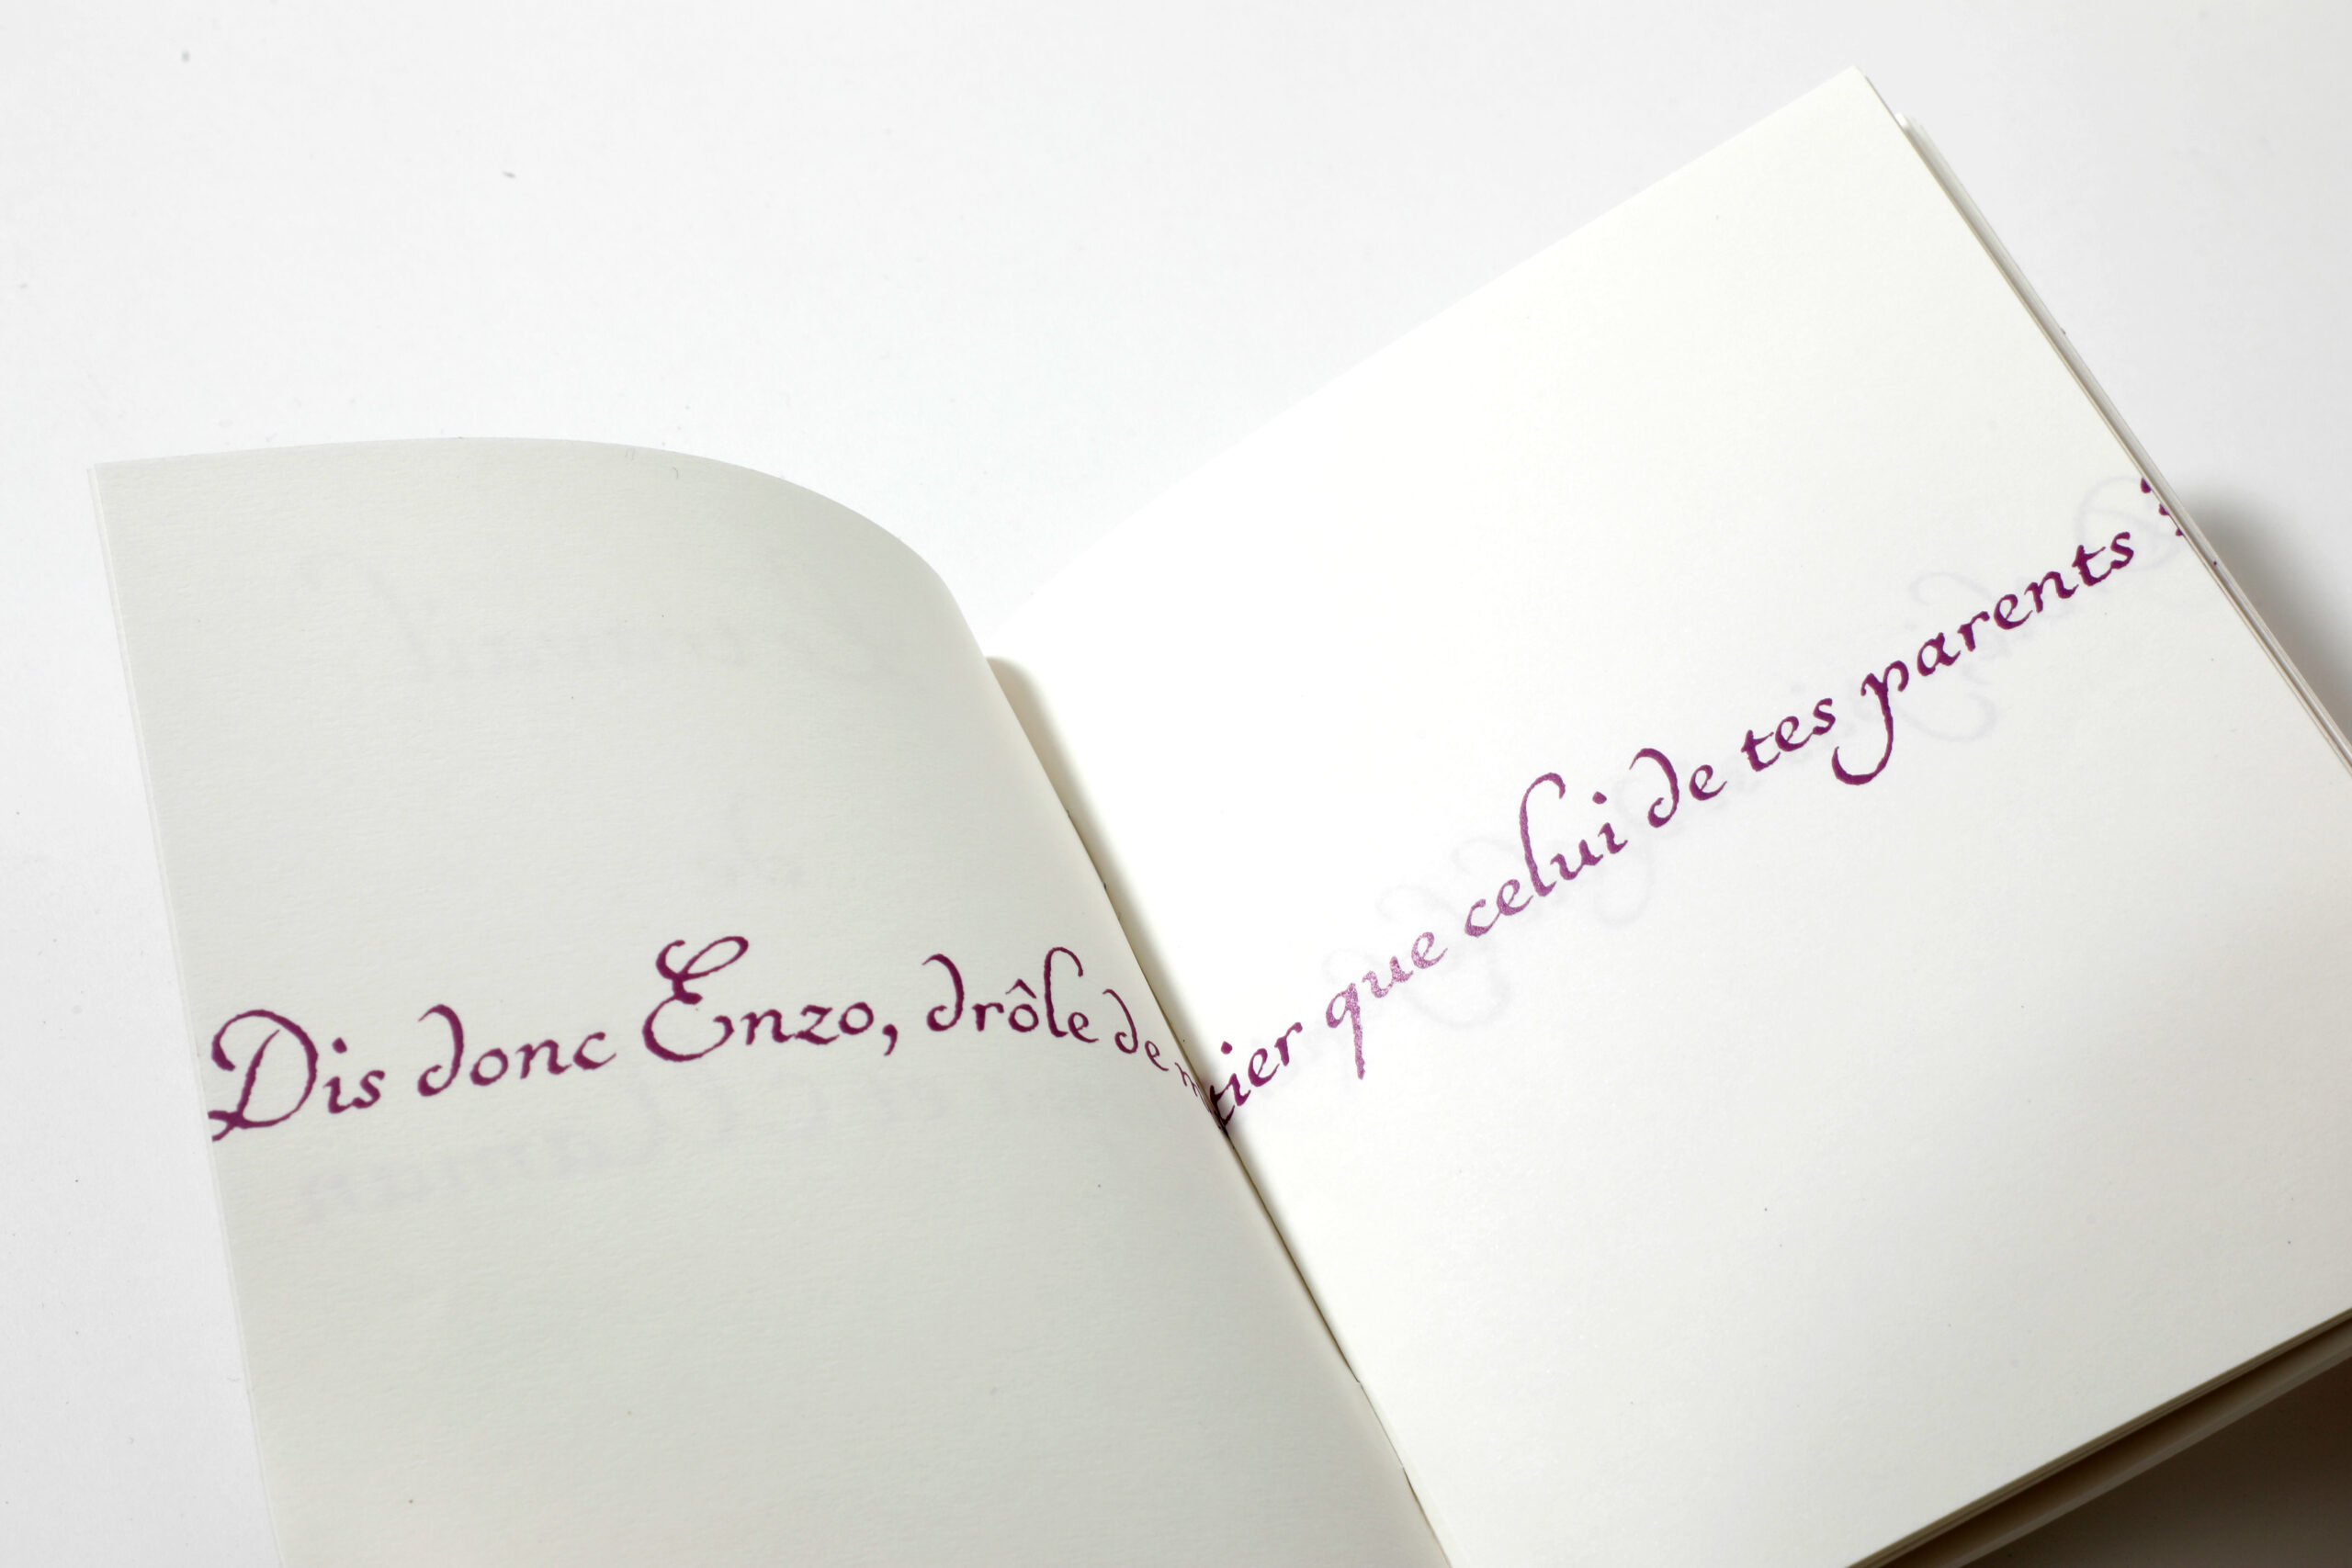 Dis donc Enzo, drôle de métier que celui de tes parents !